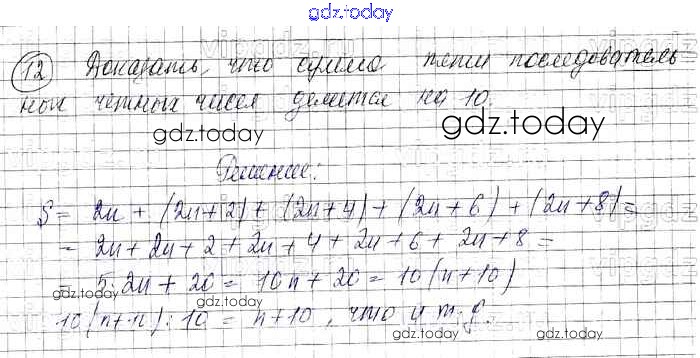 gdz.today
12 Доказать, что сумма пяти последователь
ных четных чисел делится на 10.
gdz.today
gdz.today
Решение:
S = 2n + (2n + 2) + (2n + 4) + (2n + 6) + (2n + 8) =
= 2n + 2n + 2 + 2n + 4 + 2n + 6 + 2n + 8 =
= 5·2n + 20 = 10n + 20 = 10(n + 10)
gdz.today
gdz.today
: 10 = n + 10, что и т.д.
gdz.today
gdz.today